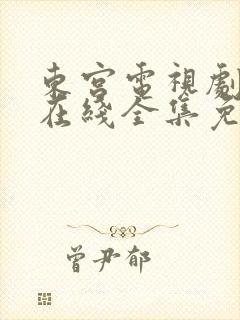 東宮電視劇
在綫全集免
曾尹郁